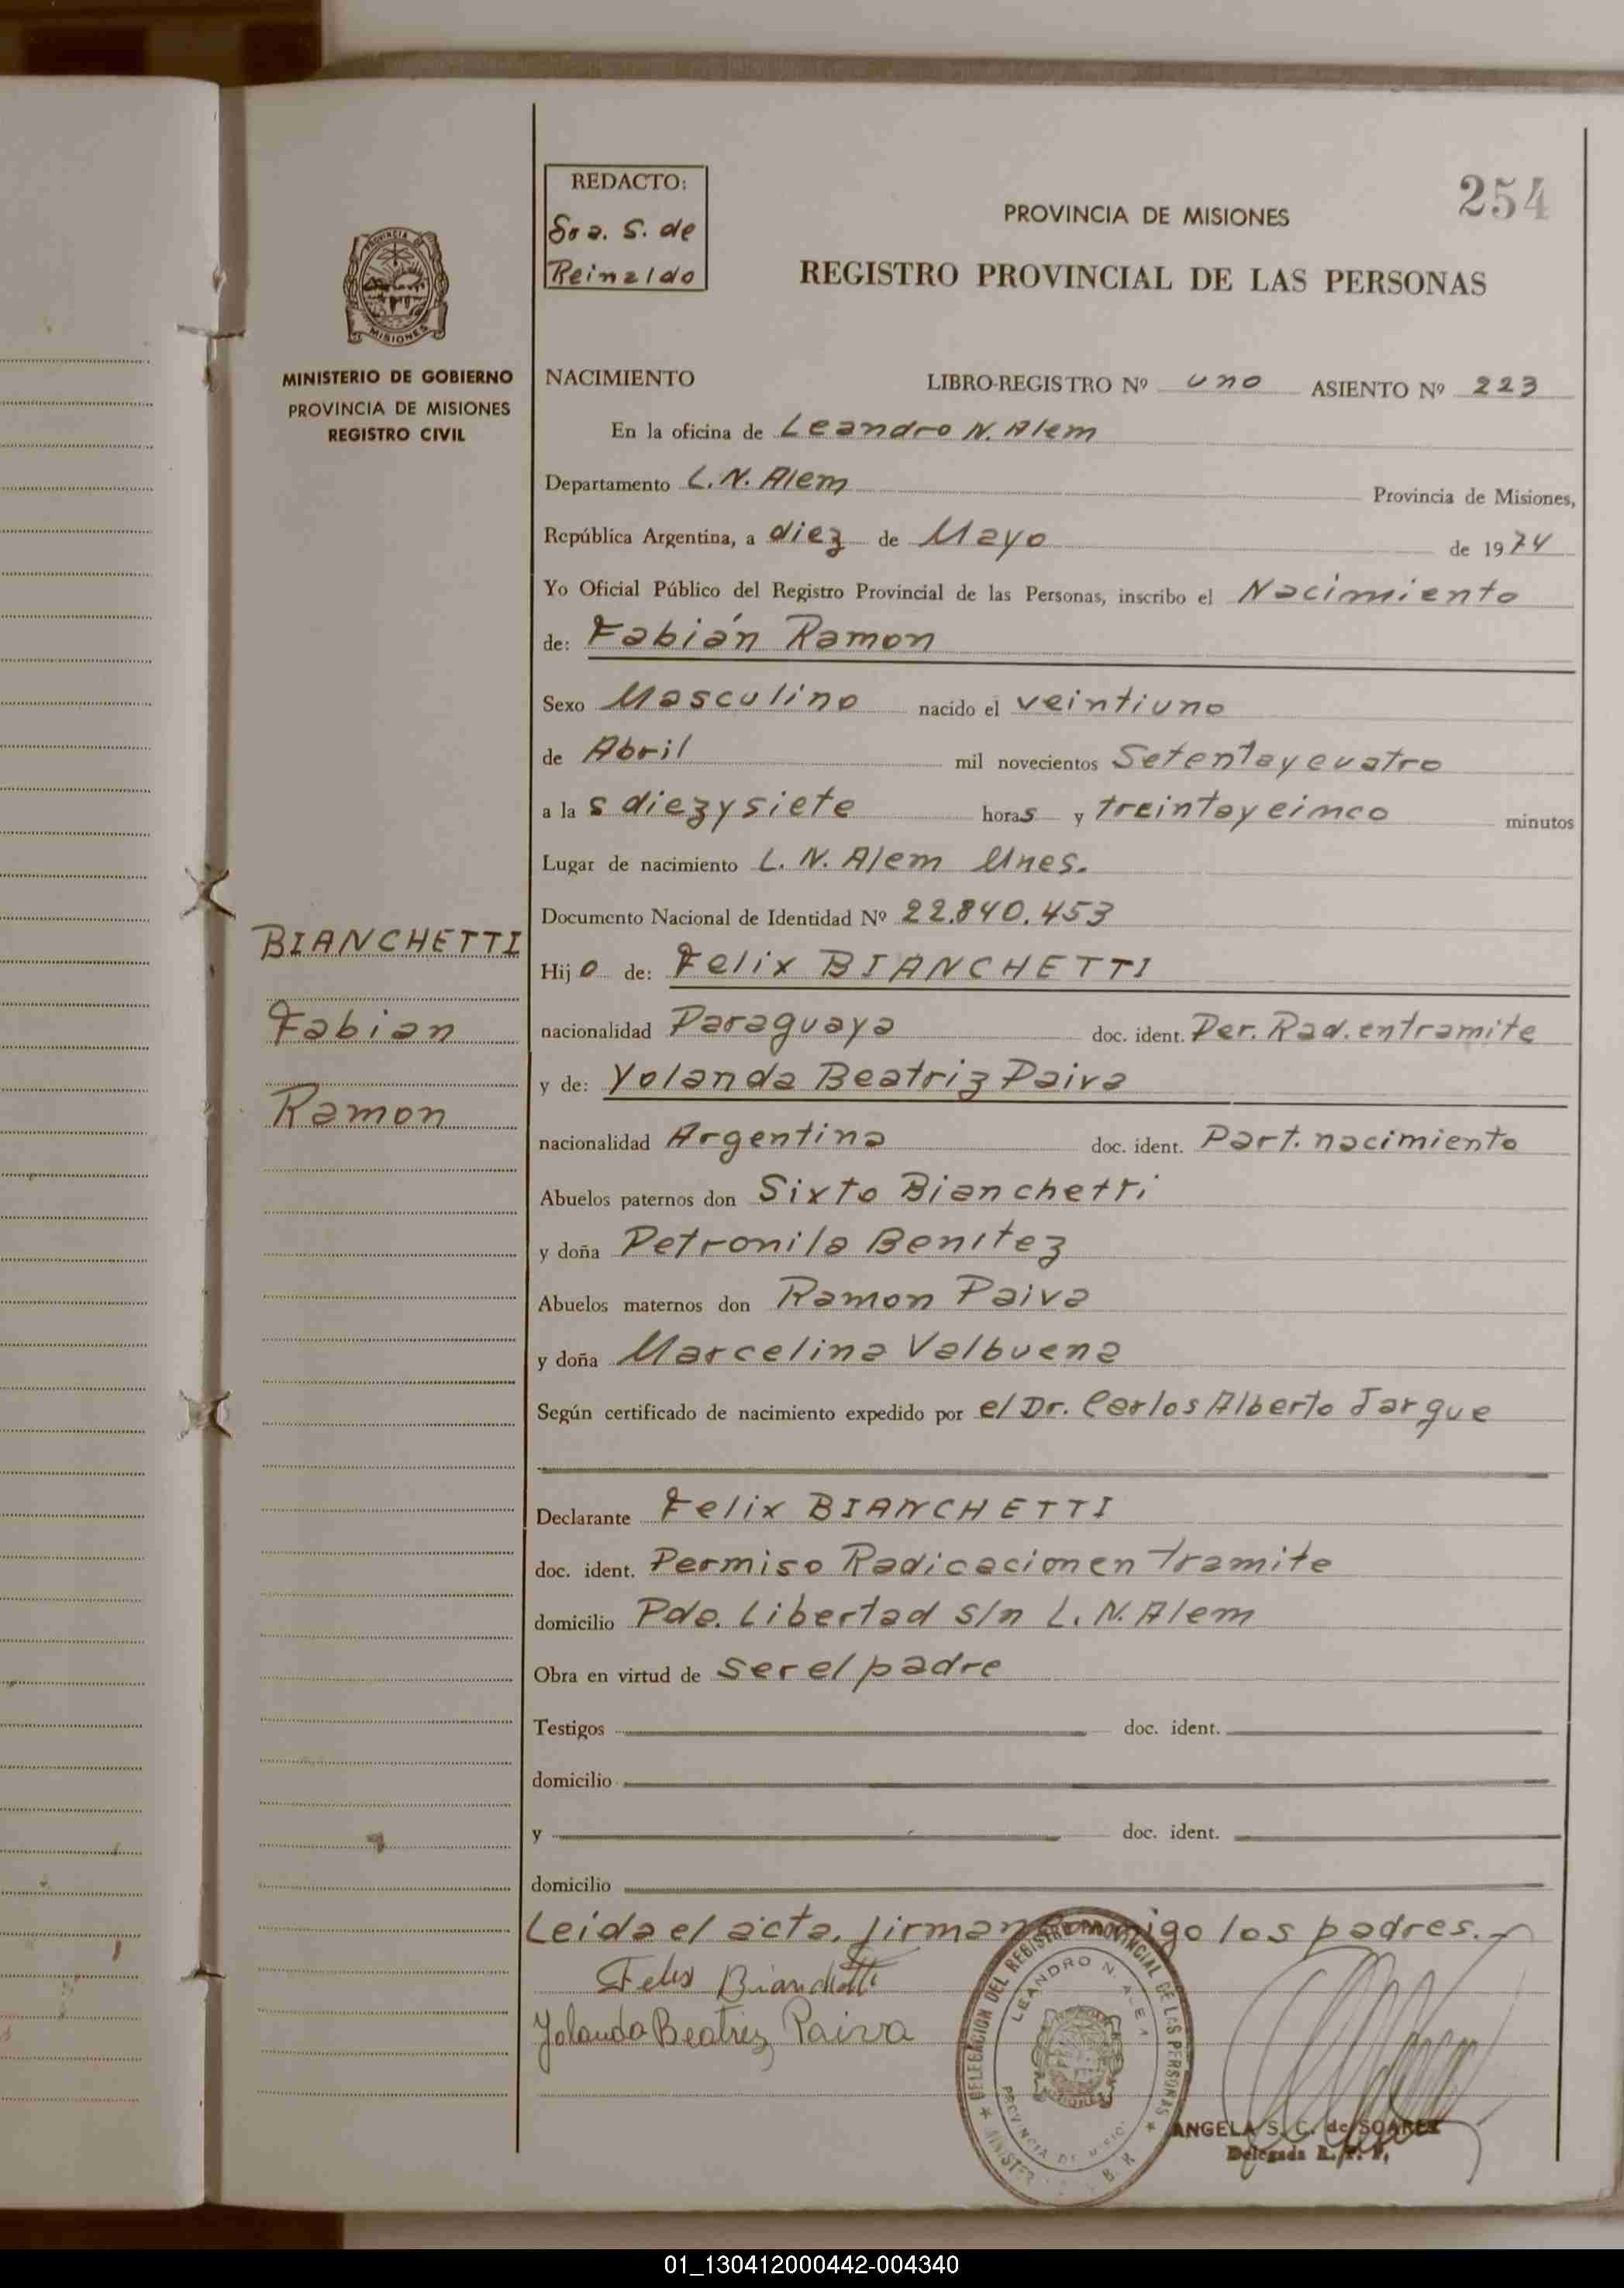 254
REDACTO:
Sra. S. de
Reinaldo
PROVINCIA DE MISIONES
REGISTRO PROVINCIAL DE LAS PERSONAS
PROVINCIA DE
MISIONES
MINISTERIO DE GOBIERNO
PROVINCIA DE MISIONES
REGISTRO CIVIL
NACIMIENTO LIBRO-REGISTRO Nº uno ASIENTO Nº 223
En la oficina de Leandro N. Alem
Departamento L. N. Alem Provincia de Misiones,
República Argentina, a diez de Mayo de 1974
Yo Oficial Público del Registro Provincial de las Personas, inscribo el Nacimiento
de: Fabián Ramon
Sexo Masculino nacido el veintiuno
de Abril mil novecientos Setenta y cuatro
a las diez y siete horas y treinta y cinco minutos
Lugar de nacimiento L. N. Alem Mnes.
Documento Nacional de Identidad Nº 22.840.453
BIANCHETTI
Fabian
Ramon
Hijo de: Felix BIANCHETTI
nacionalidad Paraguaya doc. ident. Per. Rad. en tramite
y de: Yolanda Beatriz Paiva
nacionalidad Argentina doc. ident. Part. nacimiento
Abuelos paternos don Sixto Bianchetti
y doña Petronila Benitez
Abuelos maternos don Ramon Paiva
y doña Marcelina Valbuena
Según certificado de nacimiento expedido por el Dr. Carlos Alberto Jarque
Declarante Felix BIANCHETTI
doc. ident. Permiso Radicacion en tramite
domicilio Pde. Libertad s/n L. N. Alem
Obra en virtud de ser el padre
Testigos doc. ident.
domicilio
y doc. ident.
domicilio
Leida el acta, firman conmigo los padres.-
Felix Bianchetti
Yolanda Beatriz Paiva
DELEGACION DEL REGISTRO PROVINCIAL DE LAS PERSONAS
LEANDRO N. ALEM
PROVINCIA DE MISIONES
ANGELA S. C. de SOAREZ
Delegada R. P. P.
01_130412000442-004340